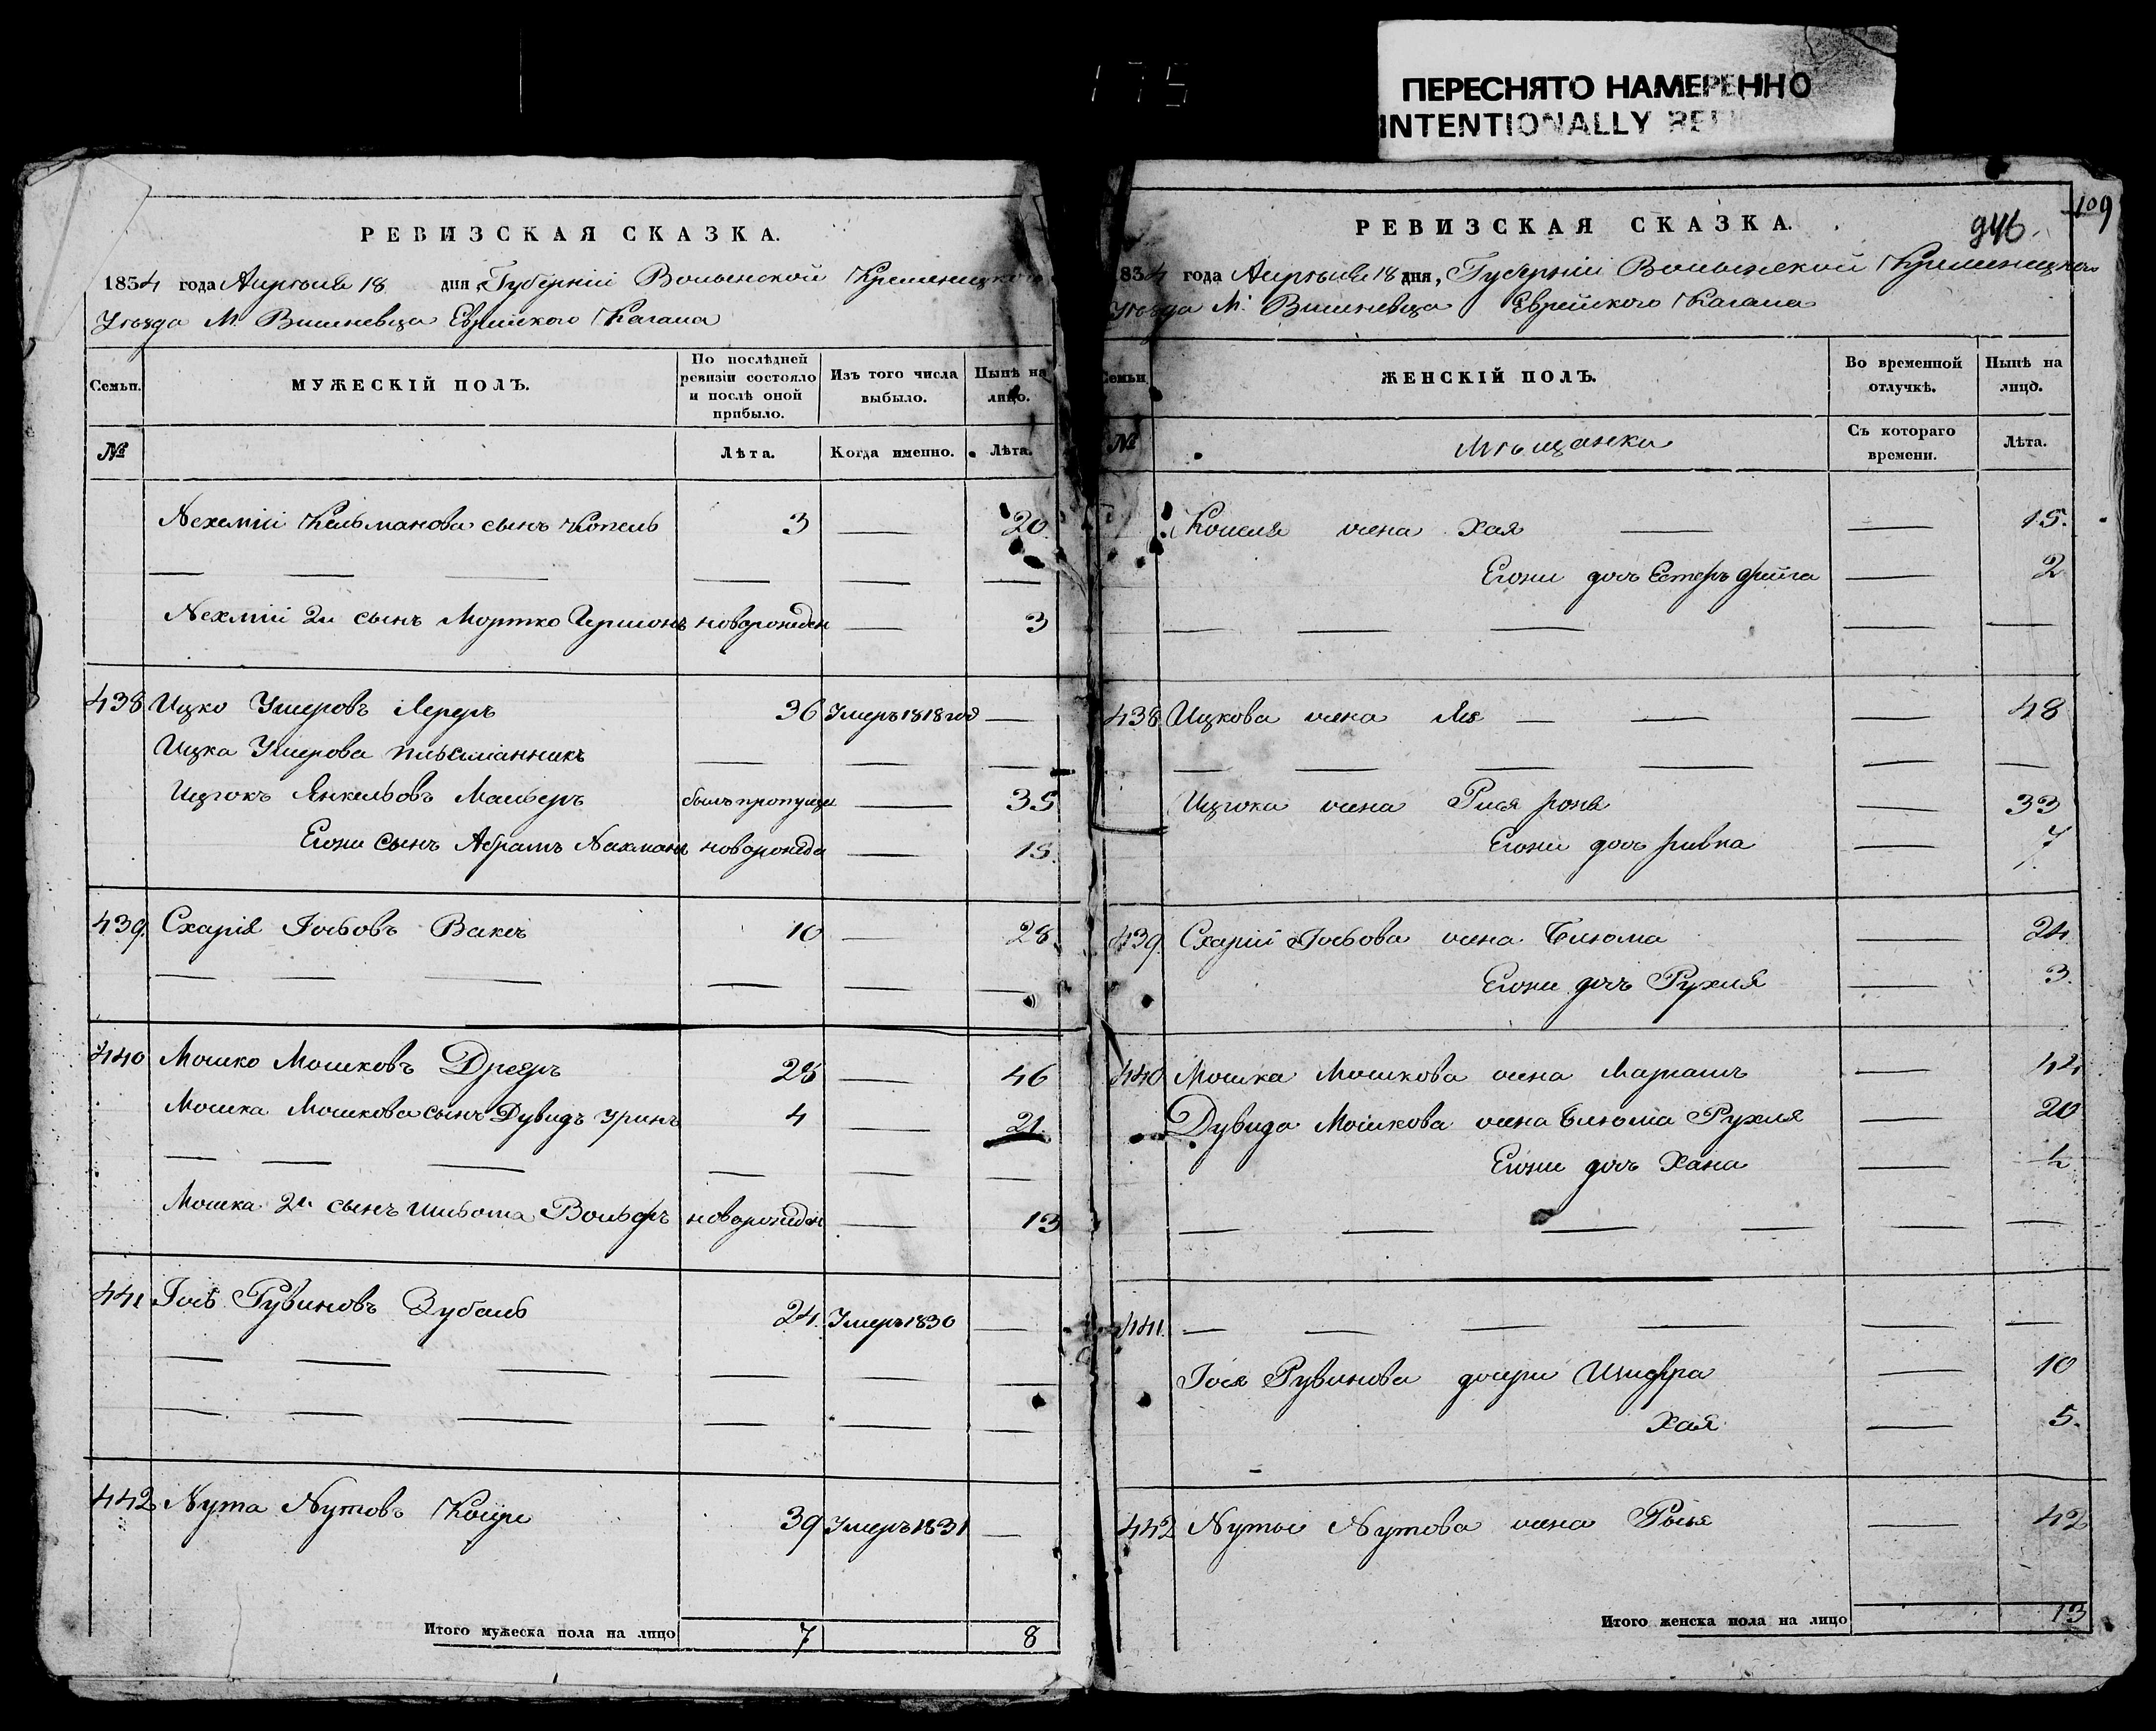 175
ПЕРЕСНЯТО НАМЕРЕННО
INTENTIONALLY
РЕВИЗСКАЯ СКАЗКА.
1834 года Апрѣля 18 дня, Губерніи Волынской Кременецкого
Уѣзда М. Вишневца Еврейского Кагала
Семьи.
МУЖЕСКІЙ ПОЛЪ.
По послѣдней ревизіи состояло и послѣ оной прибыло.
Изъ того числа выбыло.
Нынѣ на лицо.
№
Лѣта.
Когда именно.
Лѣта.
Нехемій Кельманова сынъ Копель 3 — 20
Нехмій 2й сынъ Мортко Гершонъ новорожден — 3
438 Ицко Умеровъ Лереръ 36 Умеръ 1818 год —
Ицка Умерова письманникъ — — —
Ицгокъ Янкельовъ Мальеръ былъ пропущен — 35
Егожъ сынъ Абрамъ Нахманъ новорожден — 15.
439. Схарія Іосьовъ Ваксъ 10 — 28.
440 Мошко Мошковъ Дреяръ 28 — 46
Мошка Мошкова сынъ Дувидъ Уринъ 4 — 21.
Мошка 2й сынъ Шльома Вольфъ новорожден — 13
441 Іось Рувиновъ Зубаль 24. Умеръ 1830 —
442 Нута Нутовъ Коцуе 39 Умеръ 1831 —
Итого мужеска пола на лицо 7 8
109
946.
РЕВИЗСКАЯ СКАЗКА.
1834 года Апрѣля 18 дня, Губерніи Волынской Кременецкого
Уѣзда М. Вишневца Еврейского Кагала
Семьи
ЖЕНСКІЙ ПОЛЪ.
Во временной отлучкѣ.
Нынѣ на лицо.
№
Мѣщанки
Съ котораго времени.
Лѣта.
Копеля жена Хая — — 15.
Егожъ дочь Естеръ Фейга — 2
438 Ицкова жена Лея — — — 48
Ицгока жена Рися Роня — 33
Егожъ дочь Ривка — 7.
439. Схарій Іосьова жена Блюма — 24
Егожъ дочь Рухля — 3.
440 Мошка Мошкова жена Маріамъ — 44
Дувида Мошкова жена Блюма Рухля — 20
Егожъ дочь Хана — ½
441.
Іося Рувинова дочери Шифра — 10
Хая — 5.
442 Нуты Нутова жена Рыся — 42
Итого женска пола на лицо 13